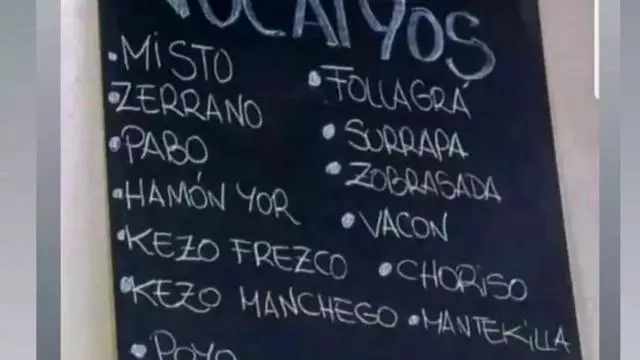 VOCAIYOS
• MISTO
• ZERRANO
• PABO
• HAMÓN YOR
• KEZO FREZCO
• KEZO MANCHEGO
• POYO
• FOLLAGRÁ
• SURRAPA
• ZOBRASADA
• VACON
• CHORISO
• MANTEKILLA